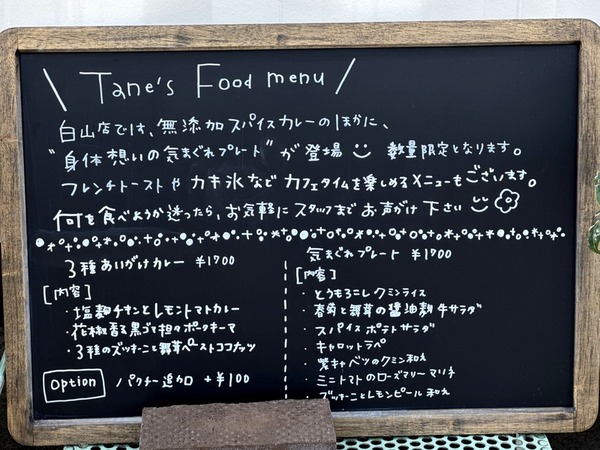 \ Tane's Food menu /
白山店では、無添加スパイスカレーのほかに、
"身体想いの気まぐれプレート"が登場 数量限定となります。
フレンチトーストや カキ氷など カフェタイムを楽しめるメニューもございます。
何を食べようか迷ったら、お気軽に スタッフまで お声がけ 下さい
3種あいがけカレー ¥1700
[内容]
・塩麹チキンとレモントマトカレー
・花椒香る黒ごま担々ポークキーマ
・3種のズッキーニと舞茸ペーストココナッツ
Option パクチー追加 +¥100
気まぐれプレート ¥1900
[内容]
・とうもろこしクミンライス
・舞茸の醤油麹 牛サラダ
・スパイスポテトサラダ
・キャロットラペ
・紫キャベツのクミン和え
・ミニトマトのローズマリーマリネ
・ズッキーニとレモンピール和え